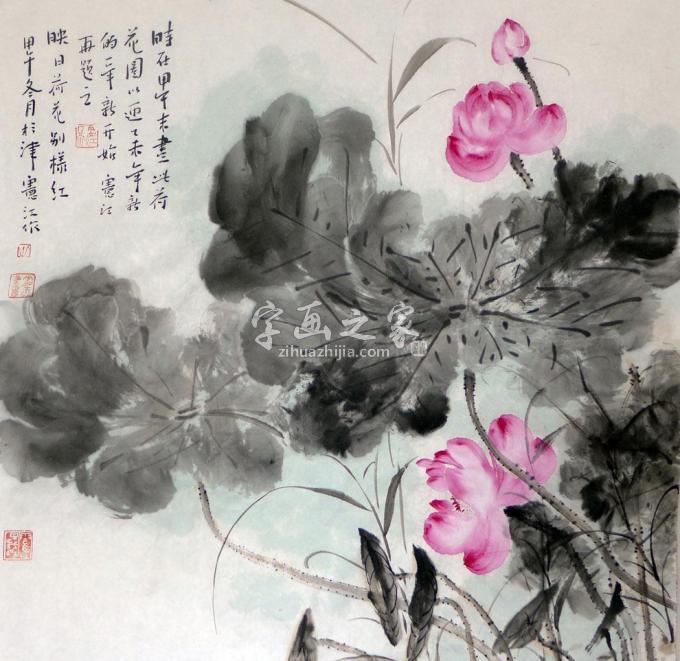 時在甲午末畫此荷
花圖以迎乙未年新
的一年新开始 憲江
再题之
映日荷花别樣红
甲午冬月於津 憲江作
字画之家
zihuazhijia.com